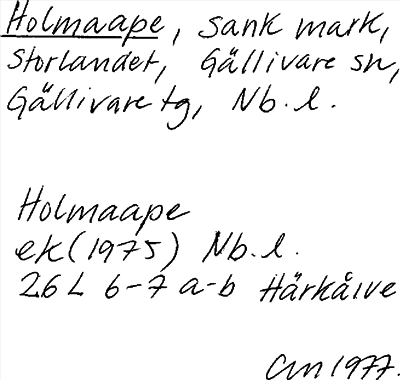 Holmaape, sank mark,
Storlandet, Gällivare sn,
Gällivare tg, Nb. l.
Holmaape
ek (1975) Nb. l.
26 L 6-7 a-b Härkåive
CM 1977.